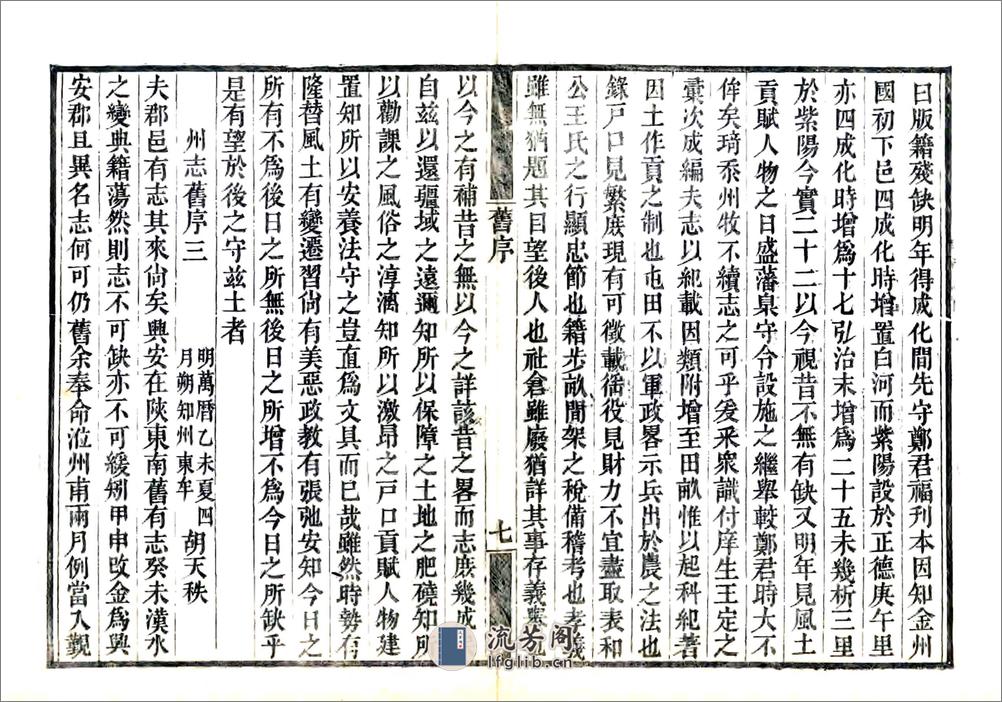 曰版籍殘缺明年得成化間先守鄭君福刊本因知金州
國初下邑四成化時增置白河而紫陽設於正德庚午里
亦四成化時增爲十七弘治末增爲二十五未幾析三里
於紫陽今實二十二以今視昔不無有缺又明年見風土
貢賦人物之日盛藩臬守令設施之繼舉較鄭君時大不
侔矣琦忝州牧不續志之可乎爰采衆議付庠生王定之
彙次成編夫志以紀載因類附增至田畝惟以起科紀著
因土作貢之制也屯田不以軍政畧示兵出於農之法也
錄戸口見繁庶現有可徵載徭役見財力不宜盡取表和
公王氏之行顯忠節也籍步畝閒架之稅備稽考也孝義
雖無猶題其目望後人也社倉雖廢猶詳其事存義
舊序
七
以今之有補昔之無以今之詳該昔之畧而志庶幾成
自兹以還疆域之遠邇知所以保障之土地之肥磽知所
以勸課之風俗之淳漓知所以激昂之戸口貢賦人物建
置知所以安養法守之豈直爲文具而已哉雖然時勢有
隆替風土有變遷習尙有美惡政教有張弛安知今日之
所有不爲後日之所無後日之所增不爲今日之所缺乎
是有望於後之守兹土者
州志舊序三
明萬曆乙未夏四
月朔知州東牟
胡天秩
夫郡邑有志其來尙矣興安在陝東南舊有志癸未漢水
之變典籍蕩然則志不可缺亦不可緩矧甲申改金爲興
安郡且異名志何可仍舊余奉命涖州甫兩月例當入覲
流芳阁
lfglib.cn